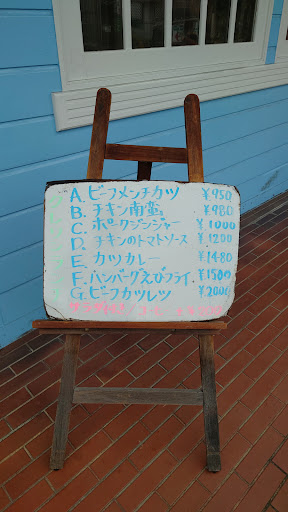 A. ビーフメンチカツ ¥950
B. チキン南蛮 ¥980
C. ポークジンジャー ¥1000
D. チキンのトマトソース ¥1200
E. カツカレー ¥1480
F. ハンバーグえびフライ ¥1500
G. ビーフカツレツ ¥2000